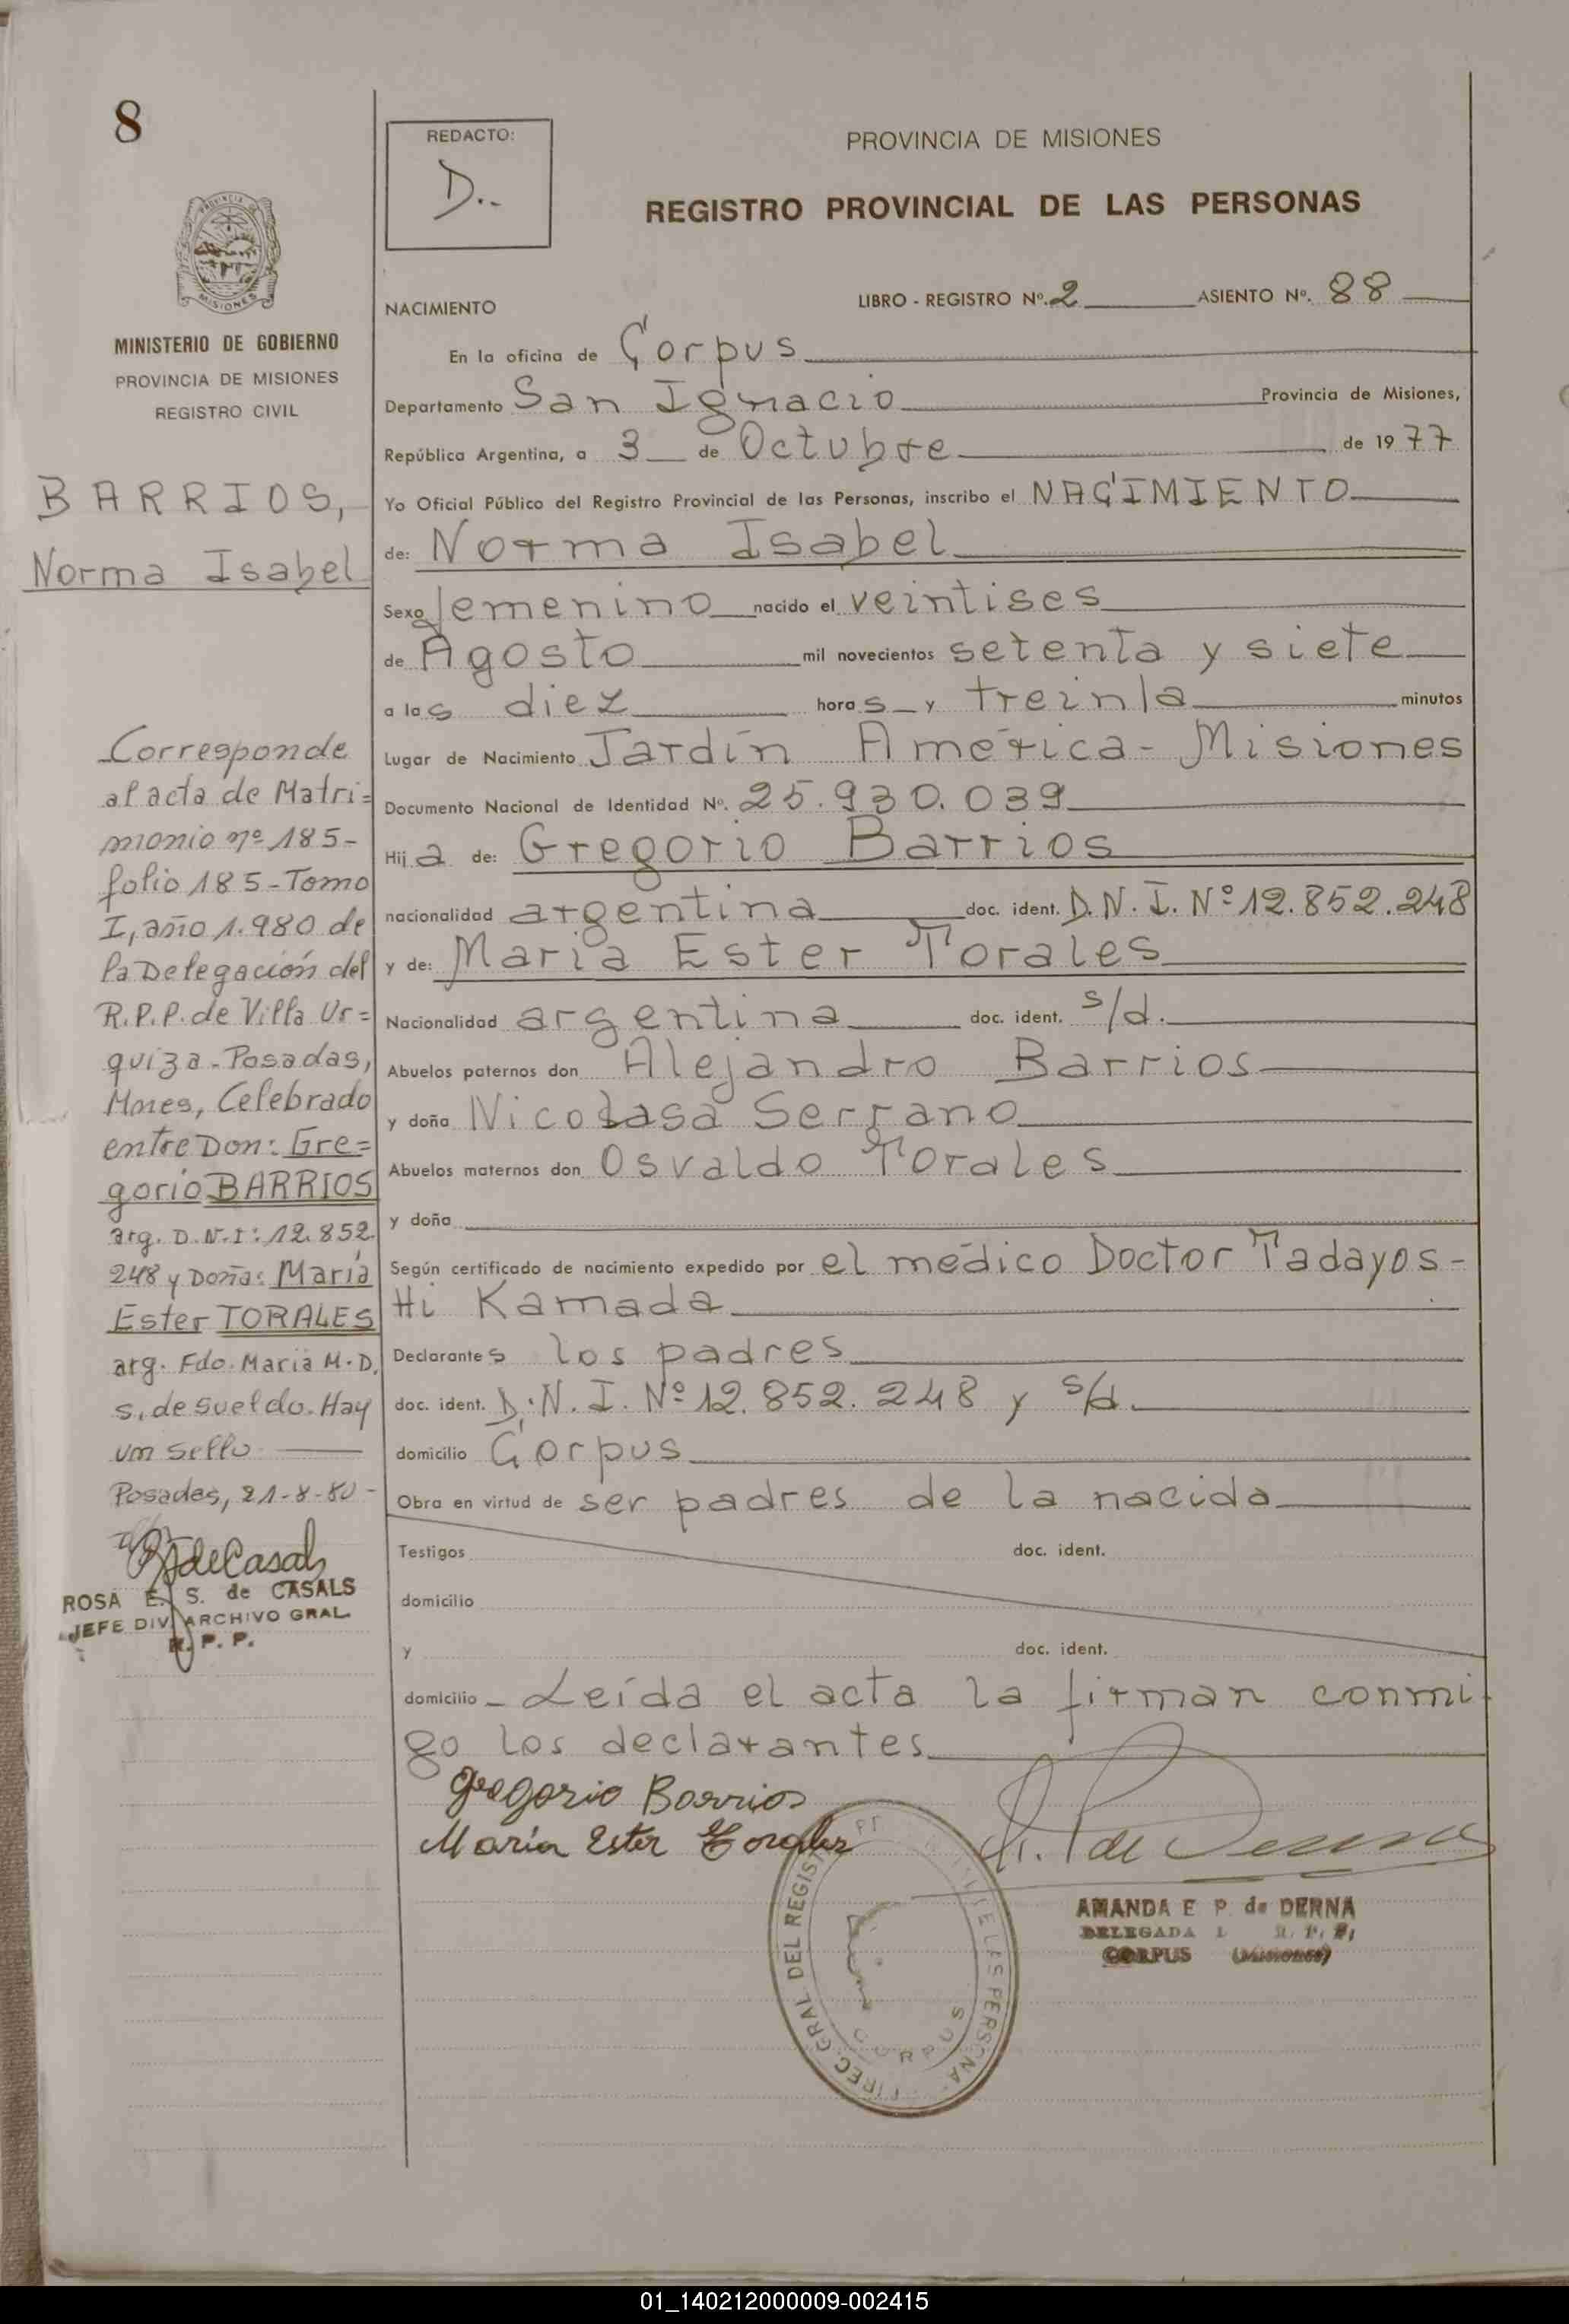 8
REDACTO:
D..
PROVINCIA DE MISIONES
REGISTRO PROVINCIAL DE LAS PERSONAS
MISIONES
MINISTERIO DE GOBIERNO
PROVINCIA DE MISIONES
REGISTRO CIVIL
BARRIOS,
Norma Isabel
Corresponde
al acta de Matri=
monio nº 185-
folio 185-Tomo
I, año 1.980 de
la Delegación del
R.P.P. de Villa Ur=
quiza-Posadas,
Mnes, Celebrado
entre Don: Gre=
gorio BARRIOS
arg. D.N.I: 12.852.
248 y Doña: María
Ester TORALES
arg. Fdo. María M. D.
s. de sueldo. Hay
un sello
Posadas, 21-8-80-
ROSA E. S. de CASALS
JEFE DIV. ARCHIVO GRAL.
R. P. P.
NACIMIENTO
LIBRO - REGISTRO Nº. 2 ASIENTO Nº. 88
En la oficina de Corpus
Departamento San Ignacio Provincia de Misiones,
República Argentina, a 3 de Octubre de 1977
Yo Oficial Público del Registro Provincial de las Personas, inscribo el NACIMIENTO
de: Norma Isabel
Sexo femenino nacido el veintises
de Agosto mil novecientos setenta y siete
a las diez horas y treinta minutos
Lugar de Nacimiento Jardín América - Misiones
Documento Nacional de Identidad Nº. 25.930.039
Hija de: Gregorio Barrios
nacionalidad argentina doc. ident. D.N.I. Nº 12.852.248
y de: María Ester Torales
Nacionalidad argentina doc. ident. s/d.
Abuelos paternos don Alejandro Barrios
y doña Nicolasa Serrano
Abuelos maternos don Osvaldo Torales
y doña
Según certificado de nacimiento expedido por el médico Doctor Tadayos-
Hi Kamada
Declarantes los padres
doc. ident. D.N.I. Nº 12.852.248 y s/d.
domicilio Corpus
Obra en virtud de ser padres de la nacida
Testigos doc. ident.
domicilio
y doc. ident.
domicilio - Leída el acta la firman conmi-
go los declarantes
Gregorio Barrios
María Ester Torales
AMANDA E P. de DERNA
DELEGADA R. P. P.
CORPUS (Misiones)
GRAL DEL REGIS
CORPUS
01_140212000009-002415